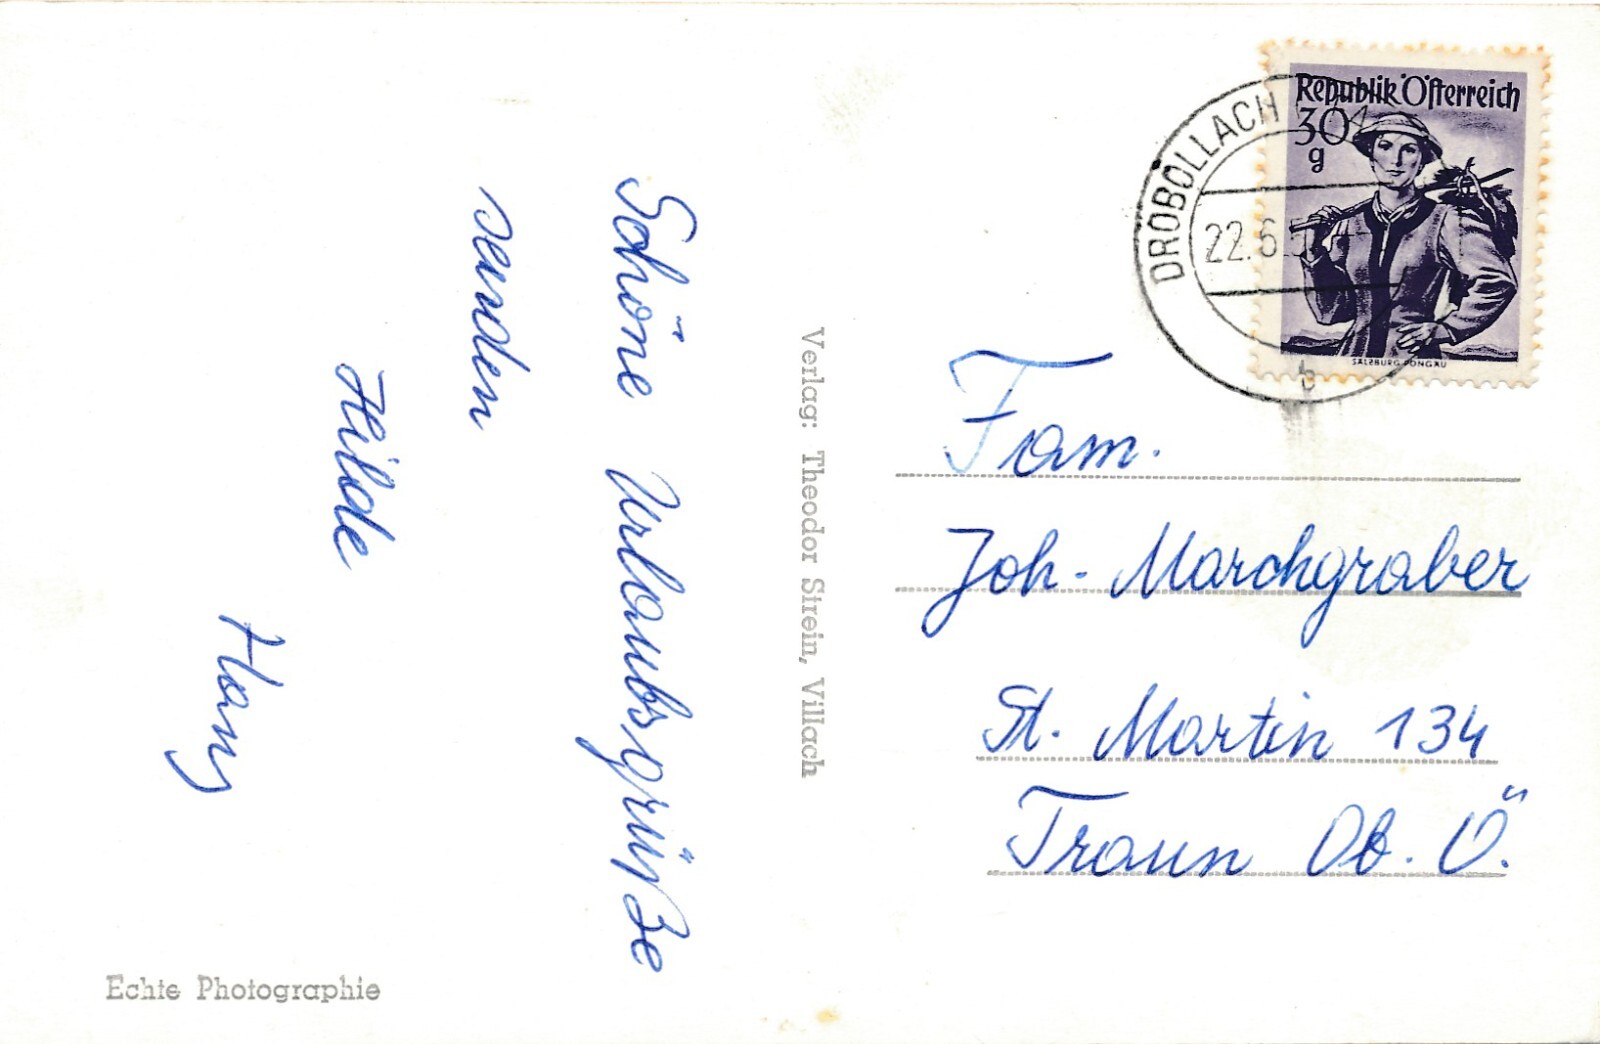 Schöne Urlaubsgrüße
senden
Hilde
Hans
Echte Photographie
Verlag: Theodor Strein, Villach
Republik Österreich
30
g
SALZBURG, PONGAU
DROBOLLACH
22.6.5
b
Fam.
Joh. Marchgraber
St. Martin 134
Traun Ob. Ö.